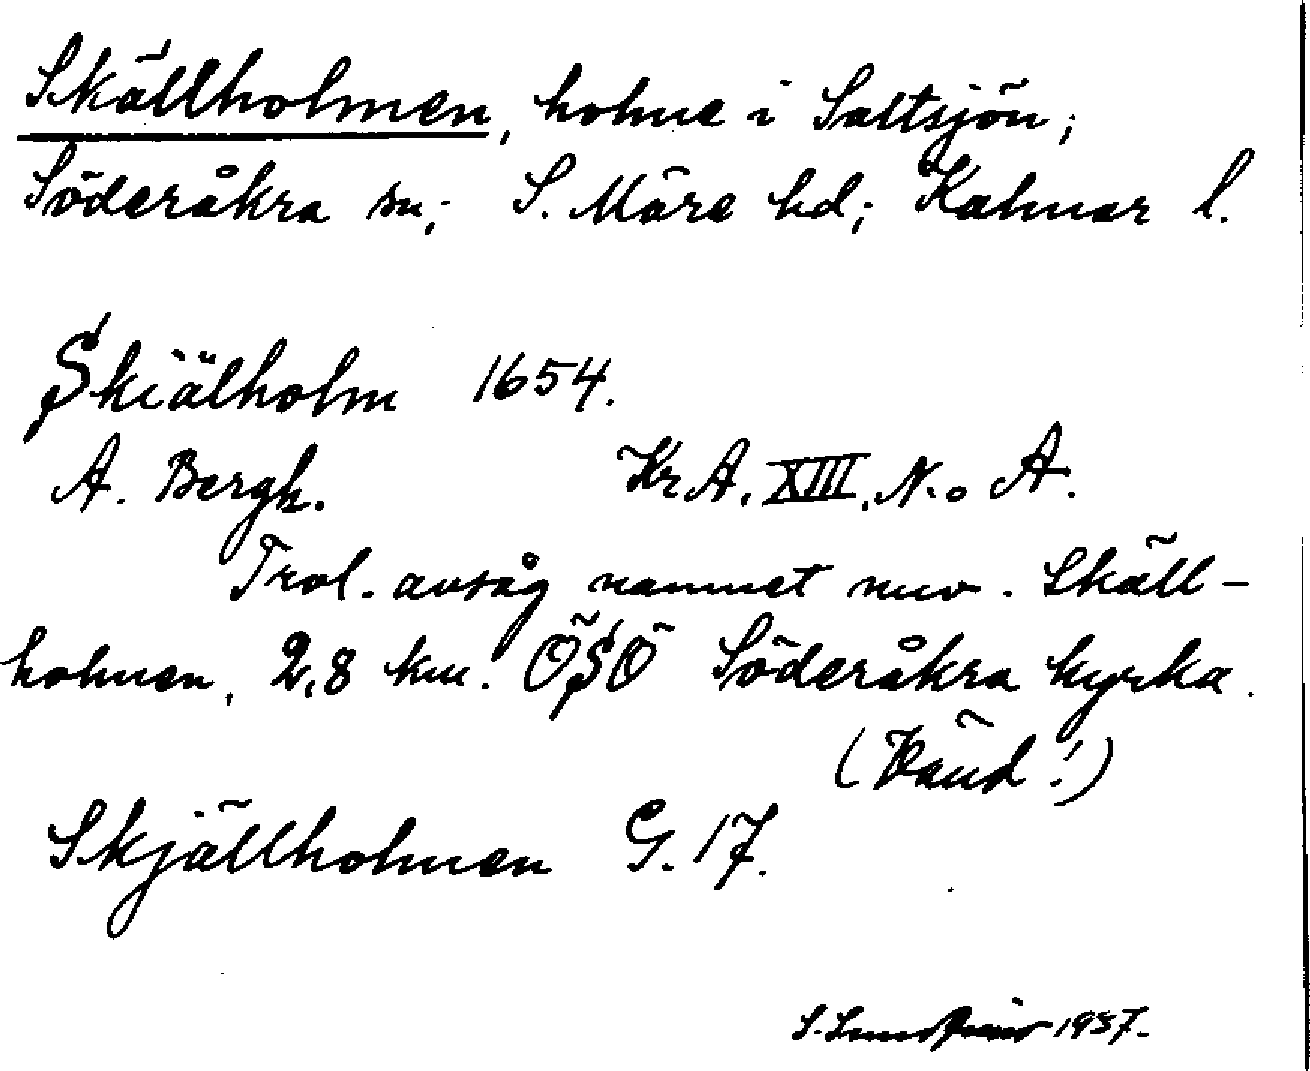 Skällholmen, holme i Saltsjön;
Söderåkra sn; S. Möre hd; Kalmar l.
Skiälholm 1654.
A. Bergh. KrA. XIII. N:o A.
Trol. avsåg namnet nuv. Skäll-
holmen, 2,8 km. ÖSÖ Söderåkra kyrka.
(Vänd!)
Skjällholmen G. 17.
S. 1957.